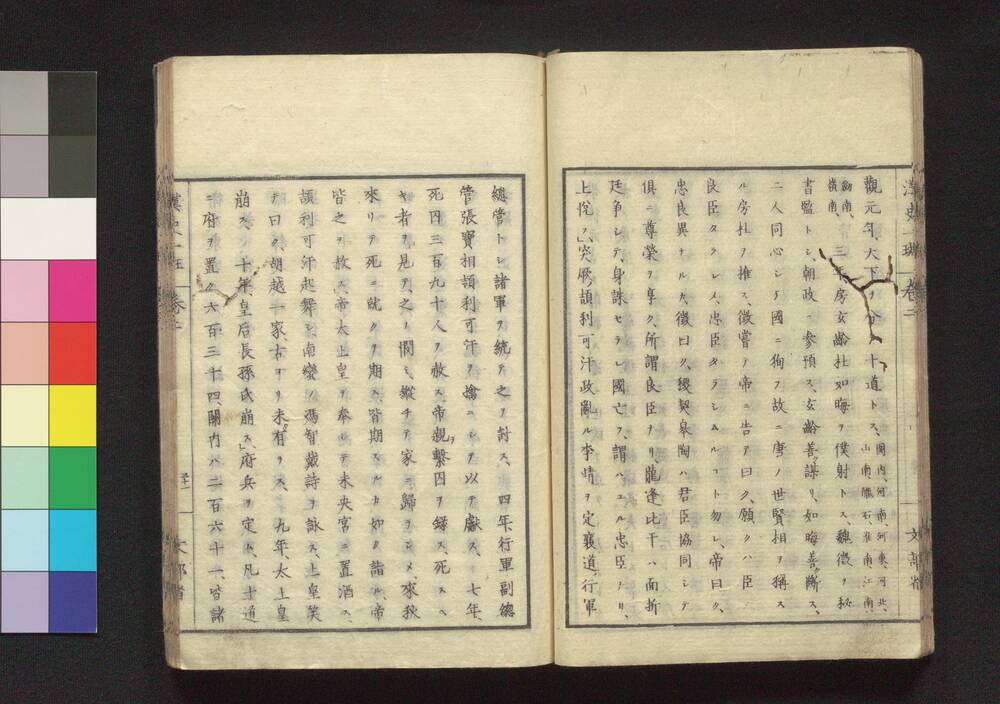 觀元年、大下ヲ分 十道トス、關内、河南、河東、河北、山南、隴右、淮南、江南、
劍南、嶺南、三 房玄齡杜如晦ヲ僕射トス、魏徵ヲ秘
書監トシ、朝政 參預ス、玄齡善ク謀リ、如晦善ク斷ス、
二人同心シテ國ニ狥フ故ニ唐ノ世賢相ヲ稱ス
ル房杜ヲ推ス、徵嘗テ帝ニ告テ曰ク、願クハ臣
良臣タラシメ、忠臣タラシムルコト勿レ、帝曰ク、
忠良異ナルカ、徵曰ク、稷契皋陶ハ君臣協同シテ
俱ニ尊榮ヲ享ク、所謂良臣ナリ、龍逢比干ハ面折
廷爭シテ、身誅セラレ國亡フ、謂ハユル忠臣ナリ、
上悅フ、突厥頡利可汗政亂ル李靖ヲ定襄道、行軍
總管トシ諸軍ヲ統テ之ヲ討ス、四年行軍副總
管張寶相頡利可汗ヲ擒ニシテ以テ獻ス、七年、
死囚三百九十人ヲ赦ス、帝親ラ繫囚ヲ錄ス、死スヘ
キ者ヲ見テ、之ヲ憫ミ、縱チテ家ニ歸ラシメ、來秋
來リテ死ニ就クヲ期ス、皆期スルカ如ク詣ル、帝
皆之ヲ赦ス、帝太上皇ヲ奉シテ未央宮ニ置酒ス、
頡利可汗起舞シ、南蠻ノ馮智戴詩ヲ詠ス、上皇笑
テ曰ク、胡越一家、古ヨリ未有ラス、九年、太上皇
崩ス、十年、皇后長孫氏崩ス、府兵ヲ定ム、凡十道
ニ府ヲ置ク六百三十四、關内ハ二百六十一、皆諸
卷二
文部省